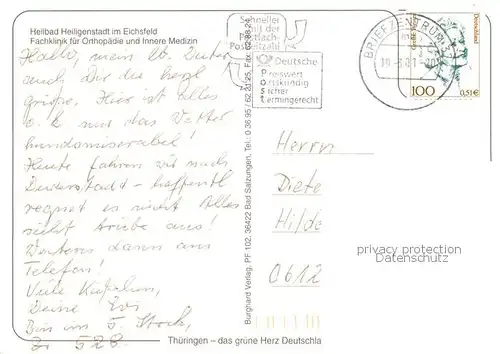 Heilbad Heiligenstadt im Eichsfeld
Fachklinik für Orthopädie und Innere Medizin
Hallo, mein lb. Dieter
auch Dir die herzl
Grüße. Hier ist alles
o.k nur das Wetter
hundsmiserabel!
Heute fahren wir nach
Duderstadt - hoffentl
regnet es nicht. Alles
sieht trübe aus!
Weiteres dann am
Telefon!
Viele
Deine Evi
Bin im 5. Stock,
Zi. 528.
Thüringen – das grüne Herz Deutschla
Burghard Verlag, PF 102, 36422 Bad Salzungen, Tel.: 0 36 95 / 62 21 25, Fax: 62 88 24
Schneller
mit der
Postfach-
Postleitzahl
Deutsche
Preiswert
Ortskundig
Sicher
Termingerecht
BRIEFZENTRUM
Deutschland
100
0,51€
Herrn
Diete
Hilde
0612
privacy protection
Datenschutz